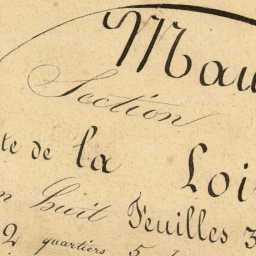 Mau
Section
te de la Loi
en huit Feuilles 3
2 quartiers 5